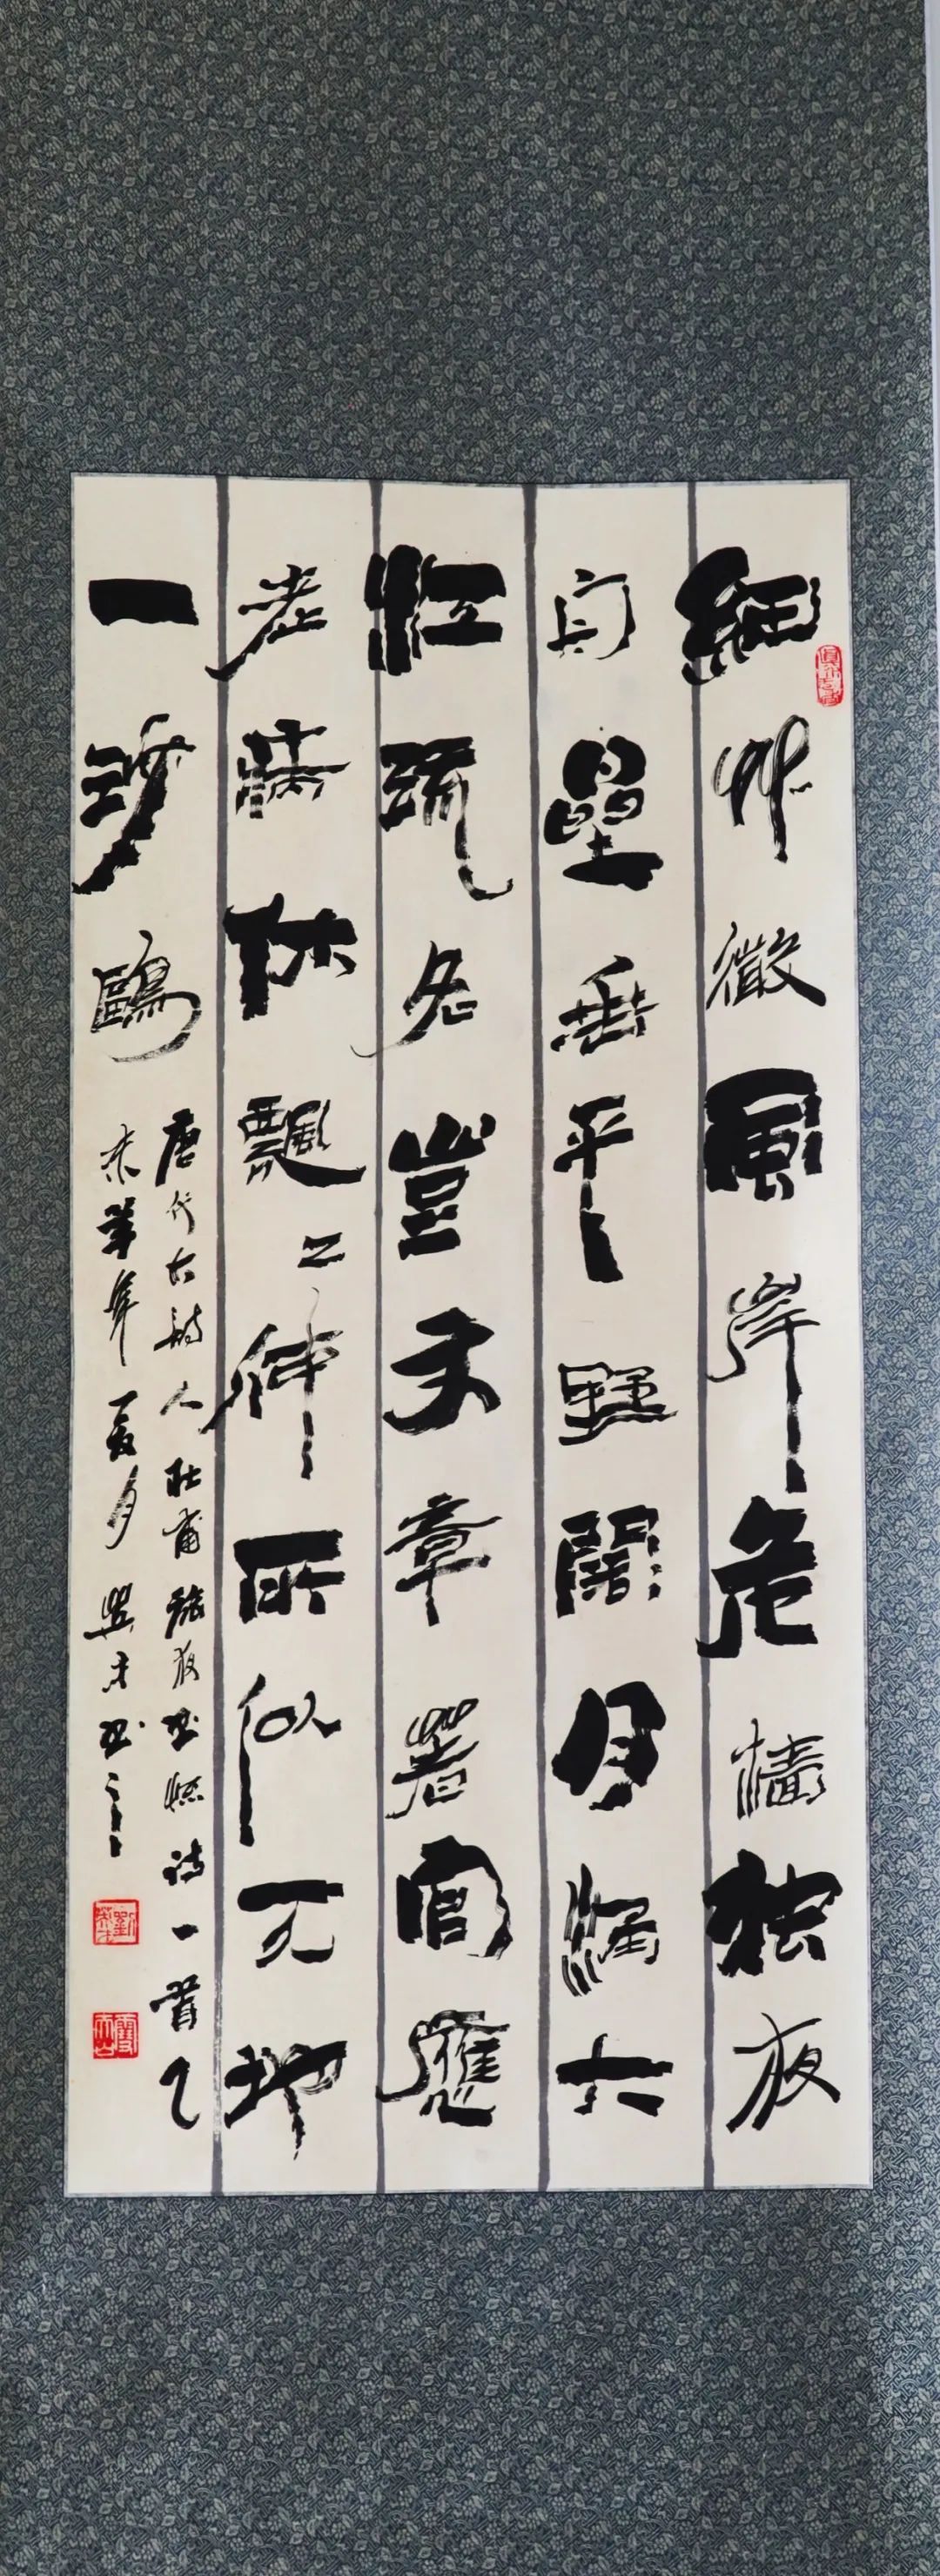 細艸微風岸危檣独夜
舟星垂平野闊月涌大
江流名豈文章著官應
老病休飄〻何所似天地
一沙鷗
唐代大詩人杜甫旅夜书懷詩一首乙
未羊年夏月興才书之